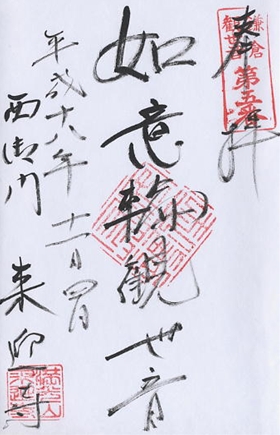 奉拝
鎌倉
観世音
第五番
如意輪観世音
平成十八年十一月四日
西御門
来迎寺
満光山